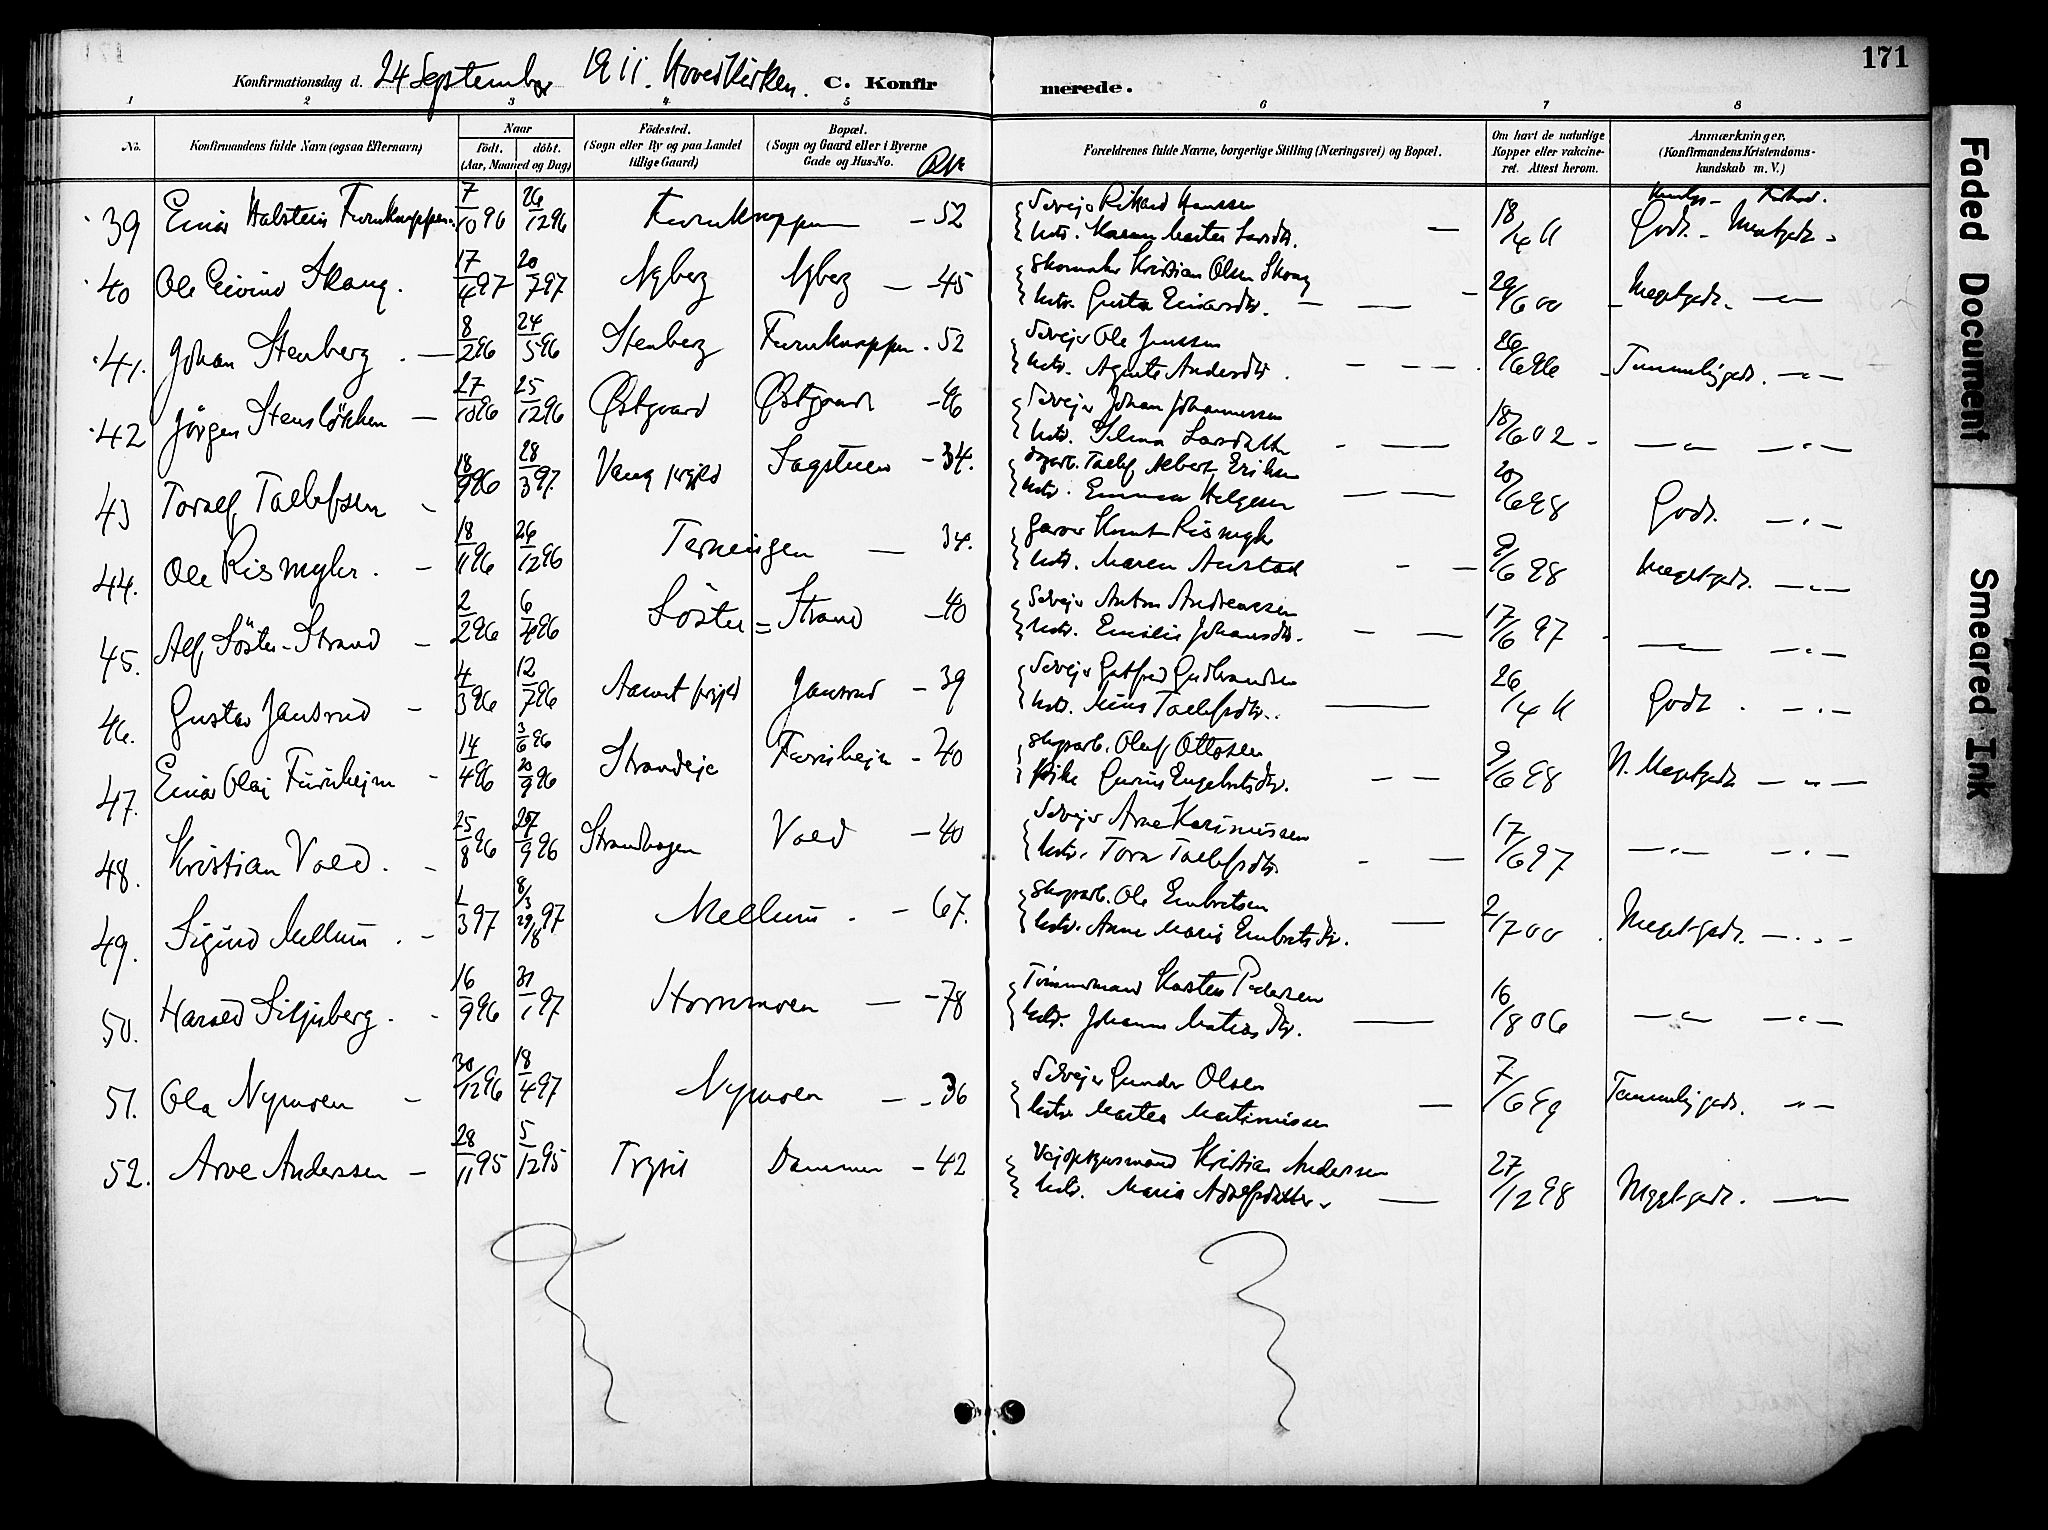 171
Konfirmationsdag d. 24 September 1911. Hovedkirken. C. Konfirmerede.
1 2 3 4 5 6 7 8
No. Konfirmandens fulde Navn (ogsaa Efternavn) Naar födt. döbt. (Aar, Maaned og Dag) Födested. (Sogn eller By og paa Landet tillige Gaard) Bopæl. (Sogn og Gaard eller i Byerne Gade og Hus-No. Forældrenes fulde Navne, borgerlige Stilling (Næringsvei) og Bopæl. Om havt de naturlige Kopper eller vakcineret. Attest herom. Anmærkninger. (Konfirmandens Kristendomskundskab m. V.)
39 Einar Halstein Furuknappen. 7/10 96 26/12 96 Furuknappen — 52 Selvejer Rikard Hanssen
Hstr. Karen Martea Larsdtr. — 18/4 11 Godt. - Megetgodt -
40 Ole Eivind Skang. 17/4 97 20/7 97 Nyberg Nyberg — 45 Skomaker Kristian Olsen Skang
Hstr. Gusta Einarsdtr. — 29/6 00 Megetgodt. —"—
41. Johan Stenberg . — 8/2 96 24/5 96 Stenberg Furuknappen . 52 Selvejer Ole Jenssen
Hstr. Agnete Andersdtr. 26/6 96 Temmeliggodt. —"—
42 Jörgen Stenslökken — 27/10 96 25/12 96 Østgaard Østgaard — 46 Selvejer Johan Johannessen
Hstr. Selma Larsdatter — 18/6 02 - —"— —"—
43 Toralf Tollefsen - 18/9 96 28/3 97. Vang prgjld Sagstuen — 34. Dagarb. Tollef Albert Eriksen
Hstr. Emma Helgesen — 20/6 98 Godt. —"—
44. Ole Rismyhr . - 18/11 96 26/12 96 Terningen — 34. Garver Knut Rismyhr
Hstr. Maren Austad — 9/6 98 Megetgodt. —"—
45. Alf Söster-Strand - 2/2 96 6/4 96 Söster = Strand — 40 Selvejer Anton Andreassen
Hstr. Emilie Johansdtr. — 17/6 97 —"— —"—
46. Gustav Jansrud - 4/3 96 12/7 96 Aamot prgjld Jansrud — 39 Selvejer Gotfred Gudbrandsen
Hstr. Mina Tollefsdtr.. — 26/4 11 Godt . —"—
47. Einar Olaj Furuhejm - 14/4 96 3/6 96 20/9 96 Strandeje Furuhejm - 40 Skogarb. Oluf Ottosen
Pike Gurine Engebretsdtr. — 9/6 98 N. Megetgodt —"—
48. Kristian Vold . - 25/8 96 27/9 96 Strandhagen Vold — 40 Selvejer Arne Kasimussen
Hstr. Tora Tollefsdtr. — 17/6 97 —"— —"—
49. Sigurd Mellum . - 1/3 97 8/3 29/8 97 Mellum . — 67. Skogarb. Ole Embretsen
Hstr. Anne Marie Embretsdtr. — 2/7 00 . Megetgodt. —"—
50. Harald Siljuberg . - 16/9 96 31/1 97 Hornmoen — 78 Tömmermand Karsten Pedersen
Hstr. Johanne Matiasdtr. — 16/8 06 —"— —"—
51. Ola Nymoen - 30/12 96 18/4 97 Nymoen — 36 Selvejer Gunder Olsen
Hstr Martea Martinussen — 7/6 99 Temmeliggodt. —"—
52. Arve Anderssen — 28/11 95 5/12 95 Trysil Dammen — 42 Vejopsynsmand Kristian Anderssen
Hstr. Maria Adolfsdatter. — 27/12 98 Megetgodt. —"—
Faded Document
Smeared Ink